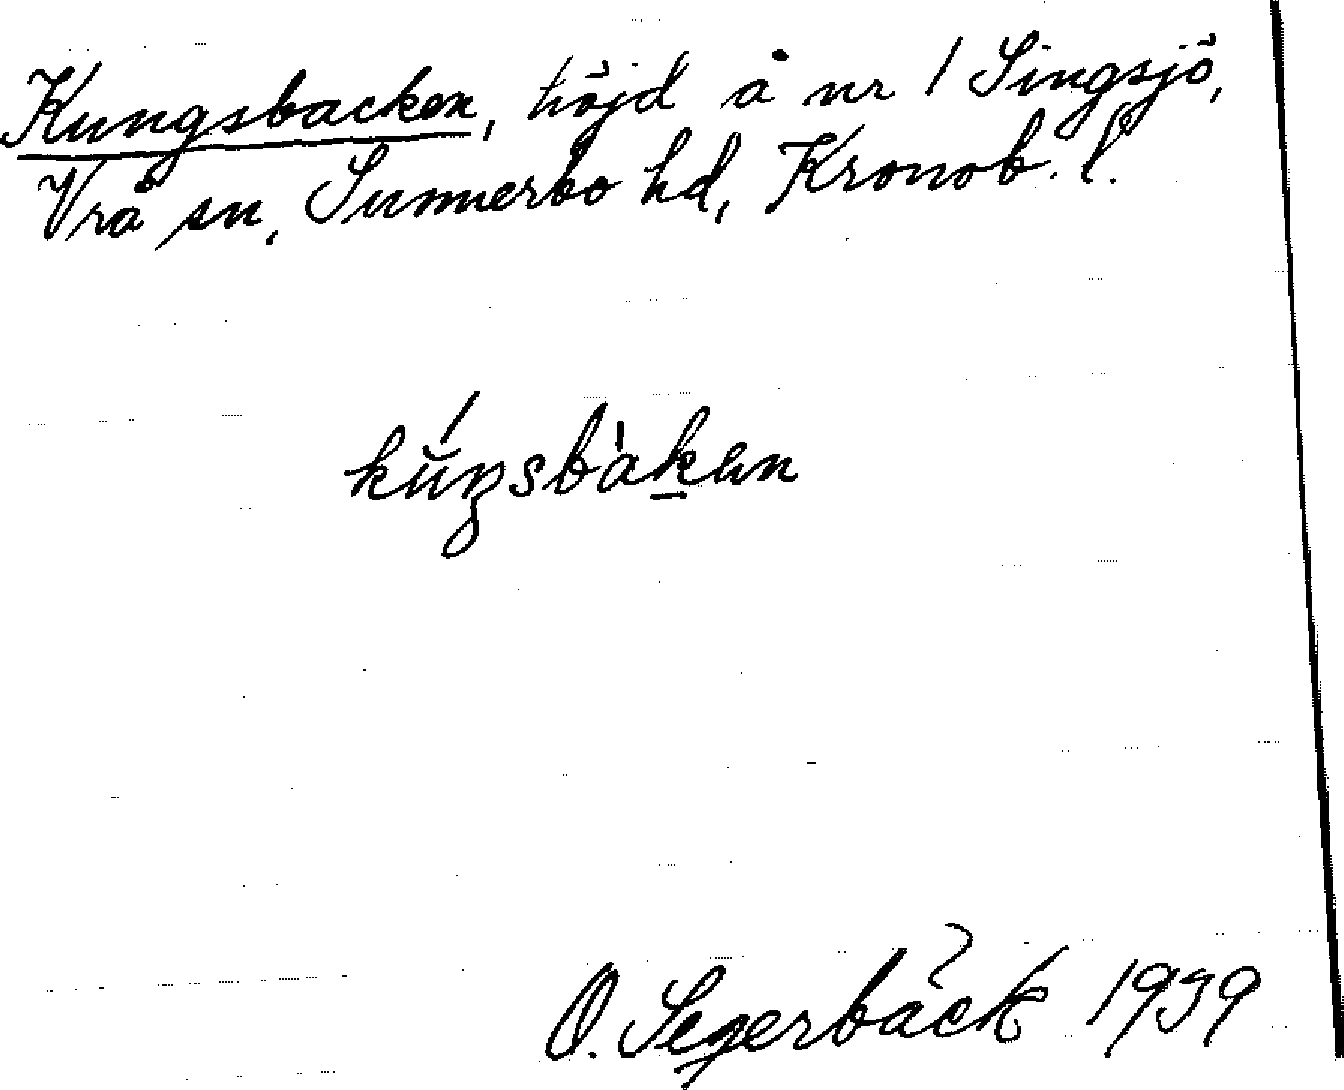 Kungsbacken, höjd å nr 1 Singsjö,
Vrå sn, Sunnerbo hd, Kronob. l.
kúŋsbàkan
O. Segerbäck 1939